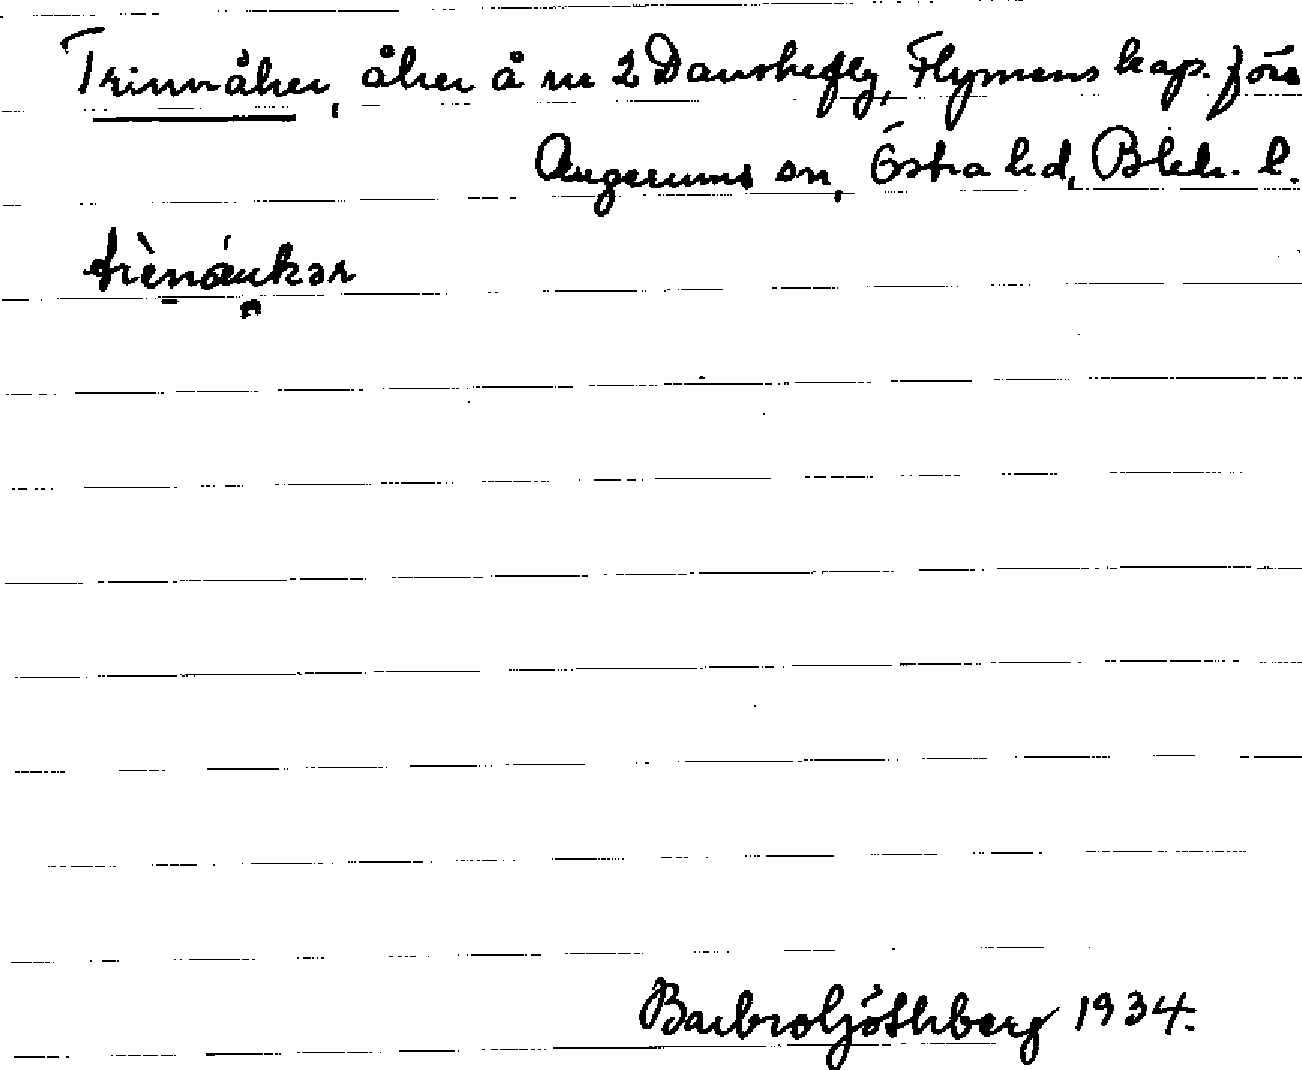 Trinnåker, åker å nr 2 Danskefly, Flymens kap. förs
Augerums sn, Östra hd, Blek. l.
Barbro Göthberg 1934.